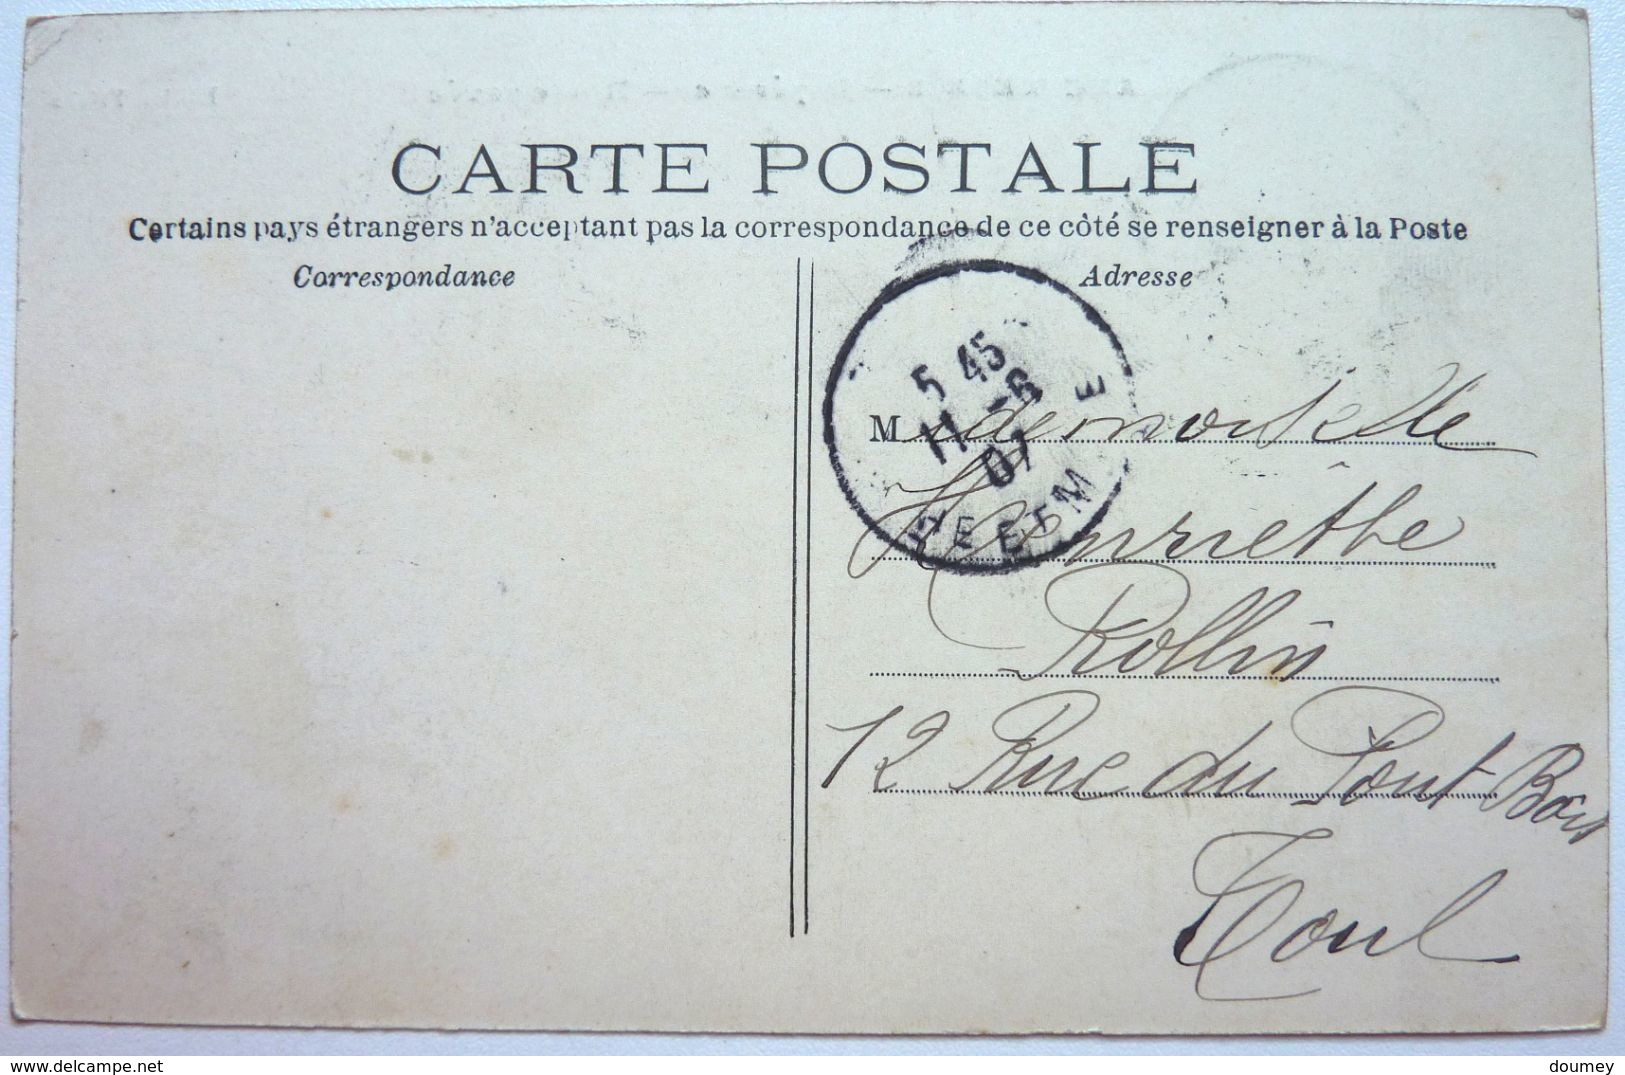 CARTE POSTALE
Certains pays étrangers n'acceptant pas la correspondance de ce côté se renseigner à la Poste
Correspondance
Adresse
5 45
11 -6
07
E
Mademoiselle
Henriethe
Rollin
12 Rue du Pont Bois
Toul
www.delcampe.net
doumey